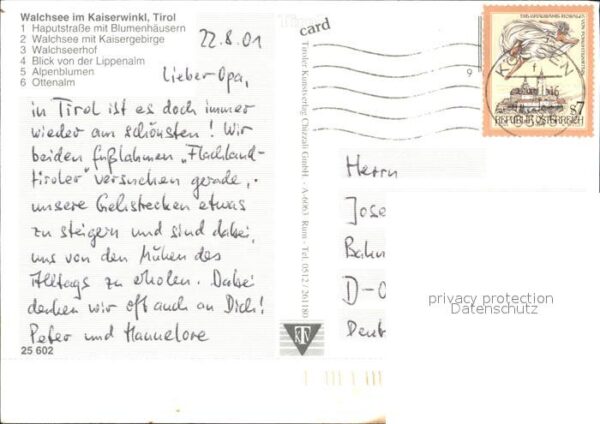 Walchsee im Kaiserwinkl, Tirol
1 Haputstraße mit Blumenhäusern
2 Walchsee mit Kaisergebirge
3 Walchseerhof
4 Blick von der Lippenalm
5 Alpenblumen
6 Ottenalm
22.8.01
Lieber Opa,
in Tirol ist es doch immer
wieder am schönsten! Wir
beiden fußlahmen "Flachland-
tiroler" versuchen gerade,
unsere Gehstrecken etwas
zu steigern und sind dabei,
uns von den Mühen des
Alltags zu erholen. Dabei
denken wir oft auch an Dich!
Peter und Hannelore
25 602
card
Tiroler Kunstverlag Chizzali GmbH. - A-6063 Rum - Tel. 0512/261180
KTV
S7
REPUBLIK ÖSTERREICH
Herrn
Jose
Bahn
D-0
Deut
privacy protection
Datenschutz